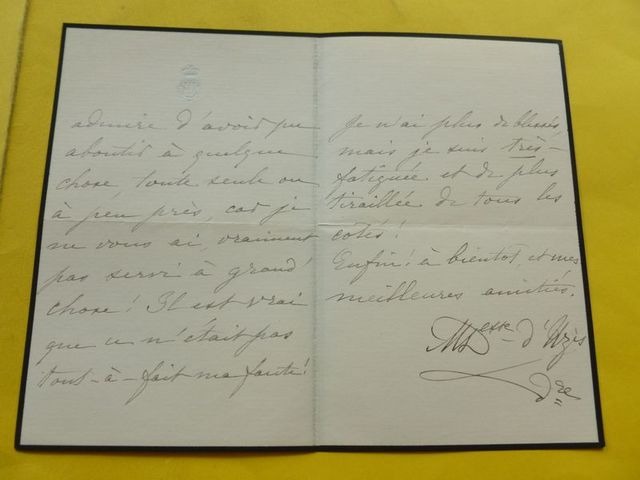 admire d'avoir pu
aboutir à quelque
chose, toute seule ou
à peu près, car je
ne vous ai, vraiment
pas servi à grand'
chose! Il est vrai
que ce n'était pas
tout-à-fait ma faute!
Je n'ai plus de blessés,
mais je suis très-
fatiguée et de plus
tiraillée de tous les
cotés!
Enfin! à bientot, et mes
meilleures amitiés.
d'Uzès
Dre